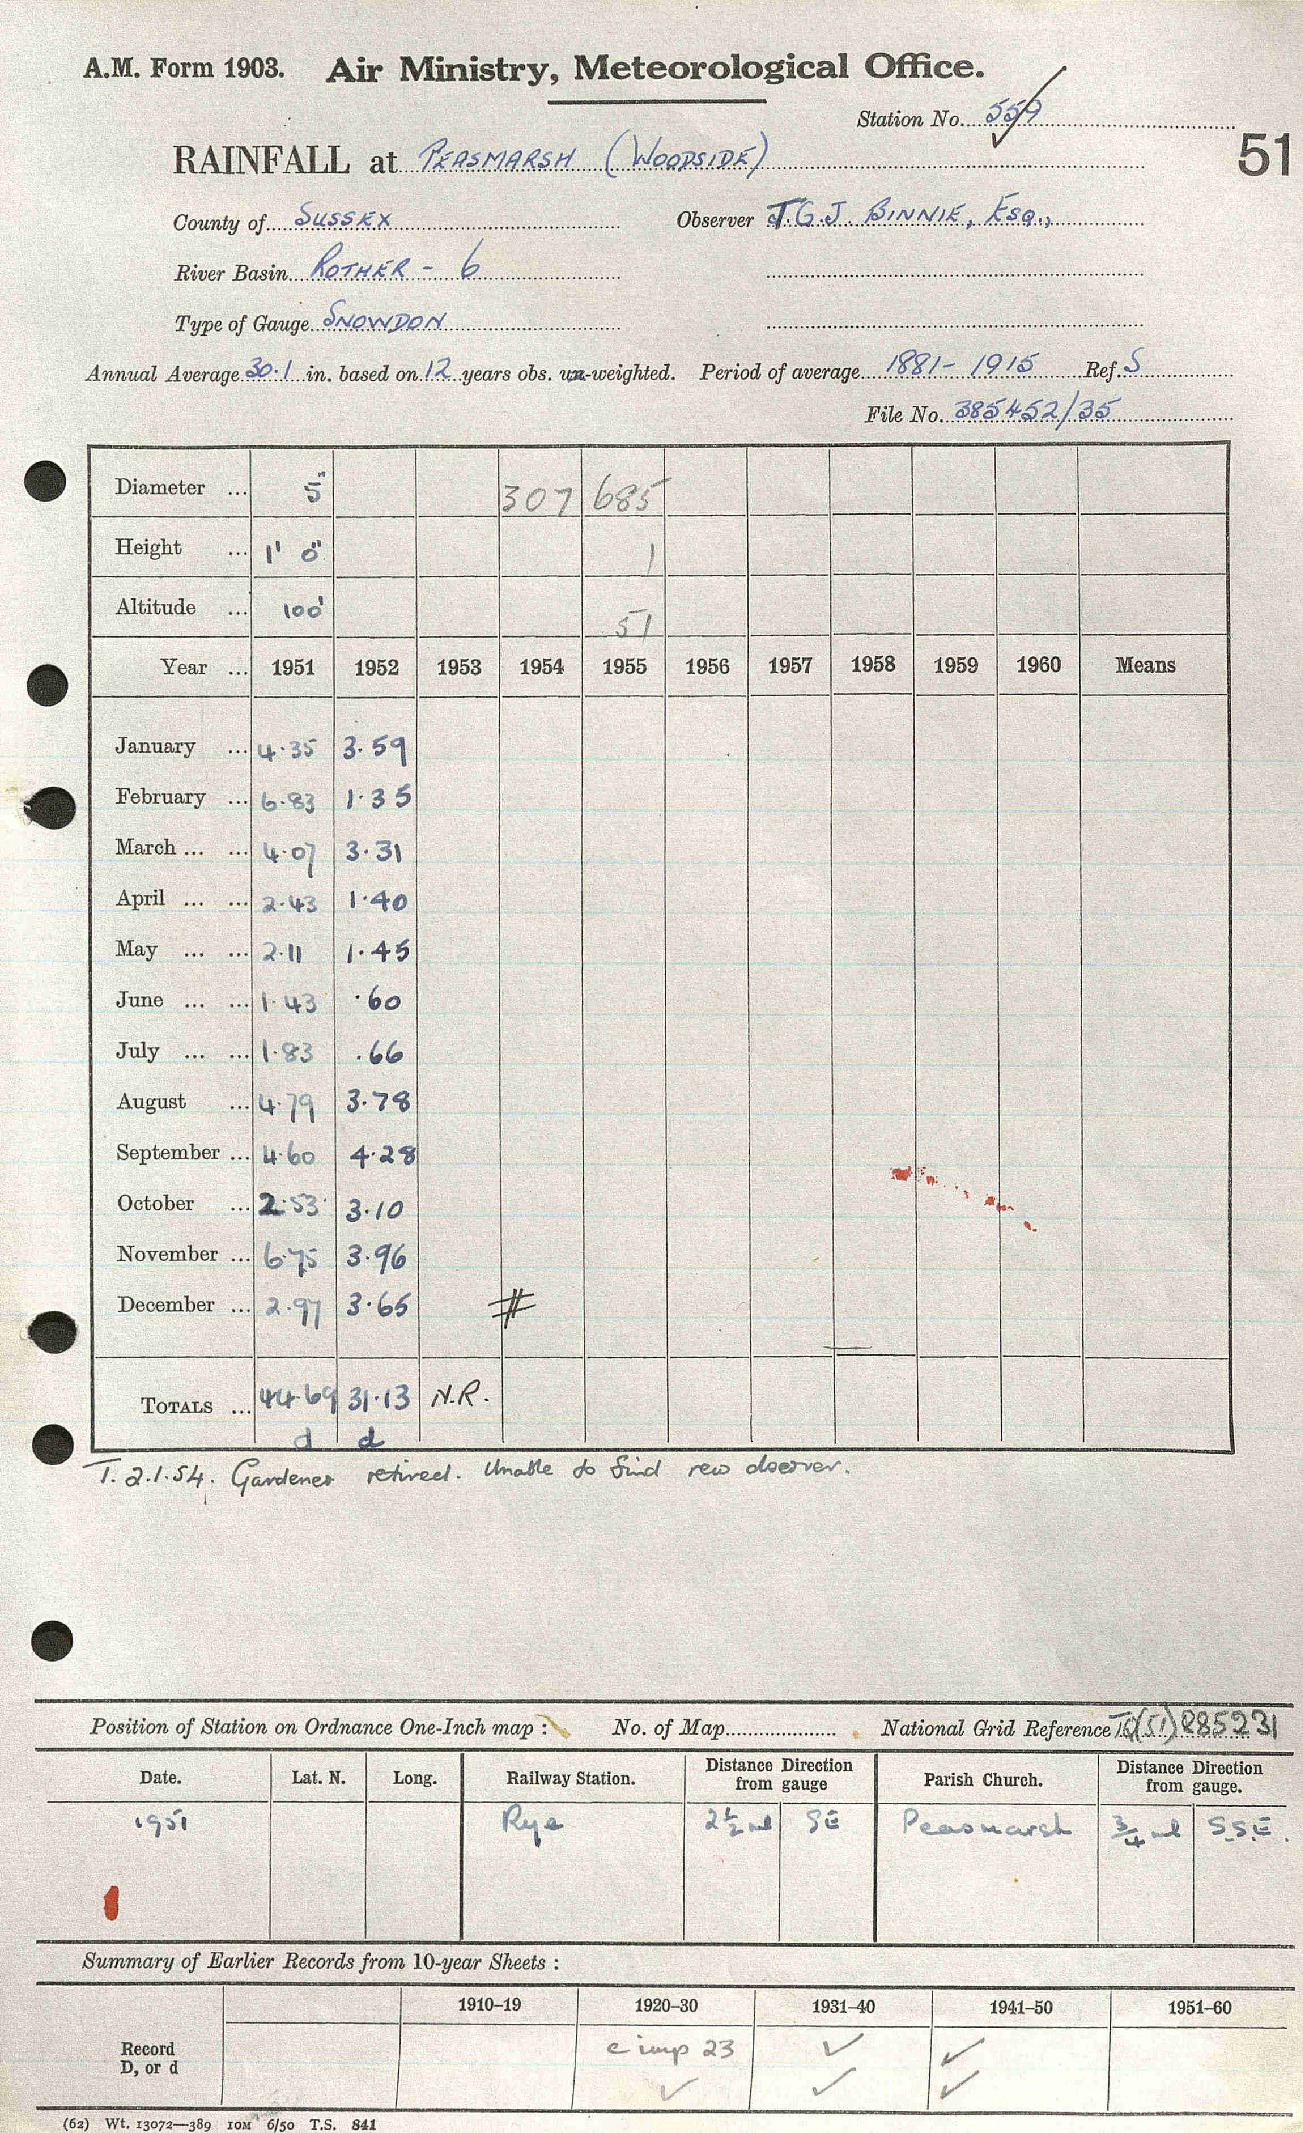 A.M. Form 1903. Air Ministry, Meteorological Office.
Station No. 559
51
RAINFALL at PEASMARSH (WOODSIDE)
County of SUSSEX Observer T.G.J. BINNIE, ESQ.,
River Basin ROTHER - 6
Type of Gauge SNOWDON
Annual Average 30.1 in. based on 12 years obs. un-weighted. Period of average 1881-1915 Ref. S
File No. 385452/35
Diameter ... 5" 307 685
Height ... 1' 0" 1
Altitude ... 100' 51
Year ... 1951 1952 1953 1954 1955 1956 1957 1958 1959 1960 Means
January ... 4.35 3.59
February ... 6.83 1.35
March ... ... 4.07 3.31
April ... ... 2.43 1.40
May ... ... 2.11 1.45
June ... ... 1.43 .60
July ... ... 1.83 .66
August ... 4.79 3.78
September ... 4.60 4.28
October ... 2.53 3.10
November ... 6.75 3.96
December ... 2.97 3.65 #
TOTALS ... 44.69 31.13 N.R.
d d
T. 2.1.54. Gardener retired. Unable to find new observer.
Position of Station on Ordnance One-Inch map : No. of Map National Grid Reference (51) 885231
Date. Lat. N. Long. Railway Station. Distance Direction from gauge Parish Church. Distance Direction from gauge.
1951 Rye 2½ ml SE Peasmarsh ¾ ml S.S.E.
Summary of Earlier Records from 10-year Sheets :
1910–19 1920–30 1931–40 1941–50 1951–60
Record c imp 23 ✓ ✓
D, or d ✓ ✓ ✓
(62) Wt. 13072—389 10M 6/50 T.S. 841